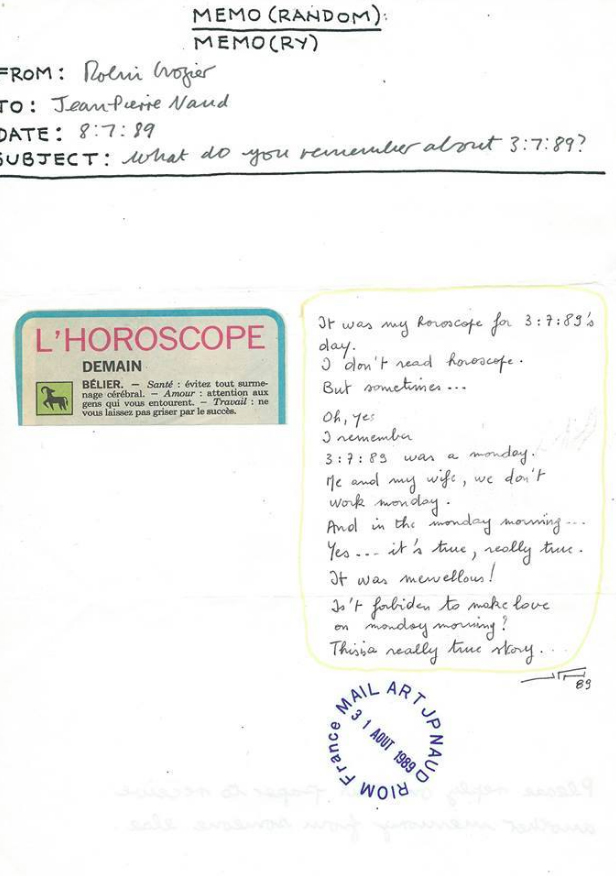 MEMO (RANDOM):
MEMO(RY)
FROM: Robin Crozier
TO: Jean-Pierre Naud
DATE: 8:7:89
SUBJECT: what do you remember about 3:7:89?
L'HOROSCOPE
DEMAIN
BÉLIER. – Santé : évitez tout surme-
nage cérébral. – Amour : attention aux
gens qui vous entourent. – Travail : ne
vous laissez pas griser par le succès.
It was my horoscope for 3:7:89's
day.
I don't read horoscope.
But sometimes...
Oh, yes
I remember
3:7:89 was a monday.
Me and my wife, we don't
work monday.
And in the monday morning...
Yes... it's true, really true.
It was mervellous!
Is't forbiden to make love
on monday morning?
This is a really true story...
89
MAIL ART JP NAUD
31 AOUT 1989
RIOM France
Please reply on this paper to receive
another memory from someone else.